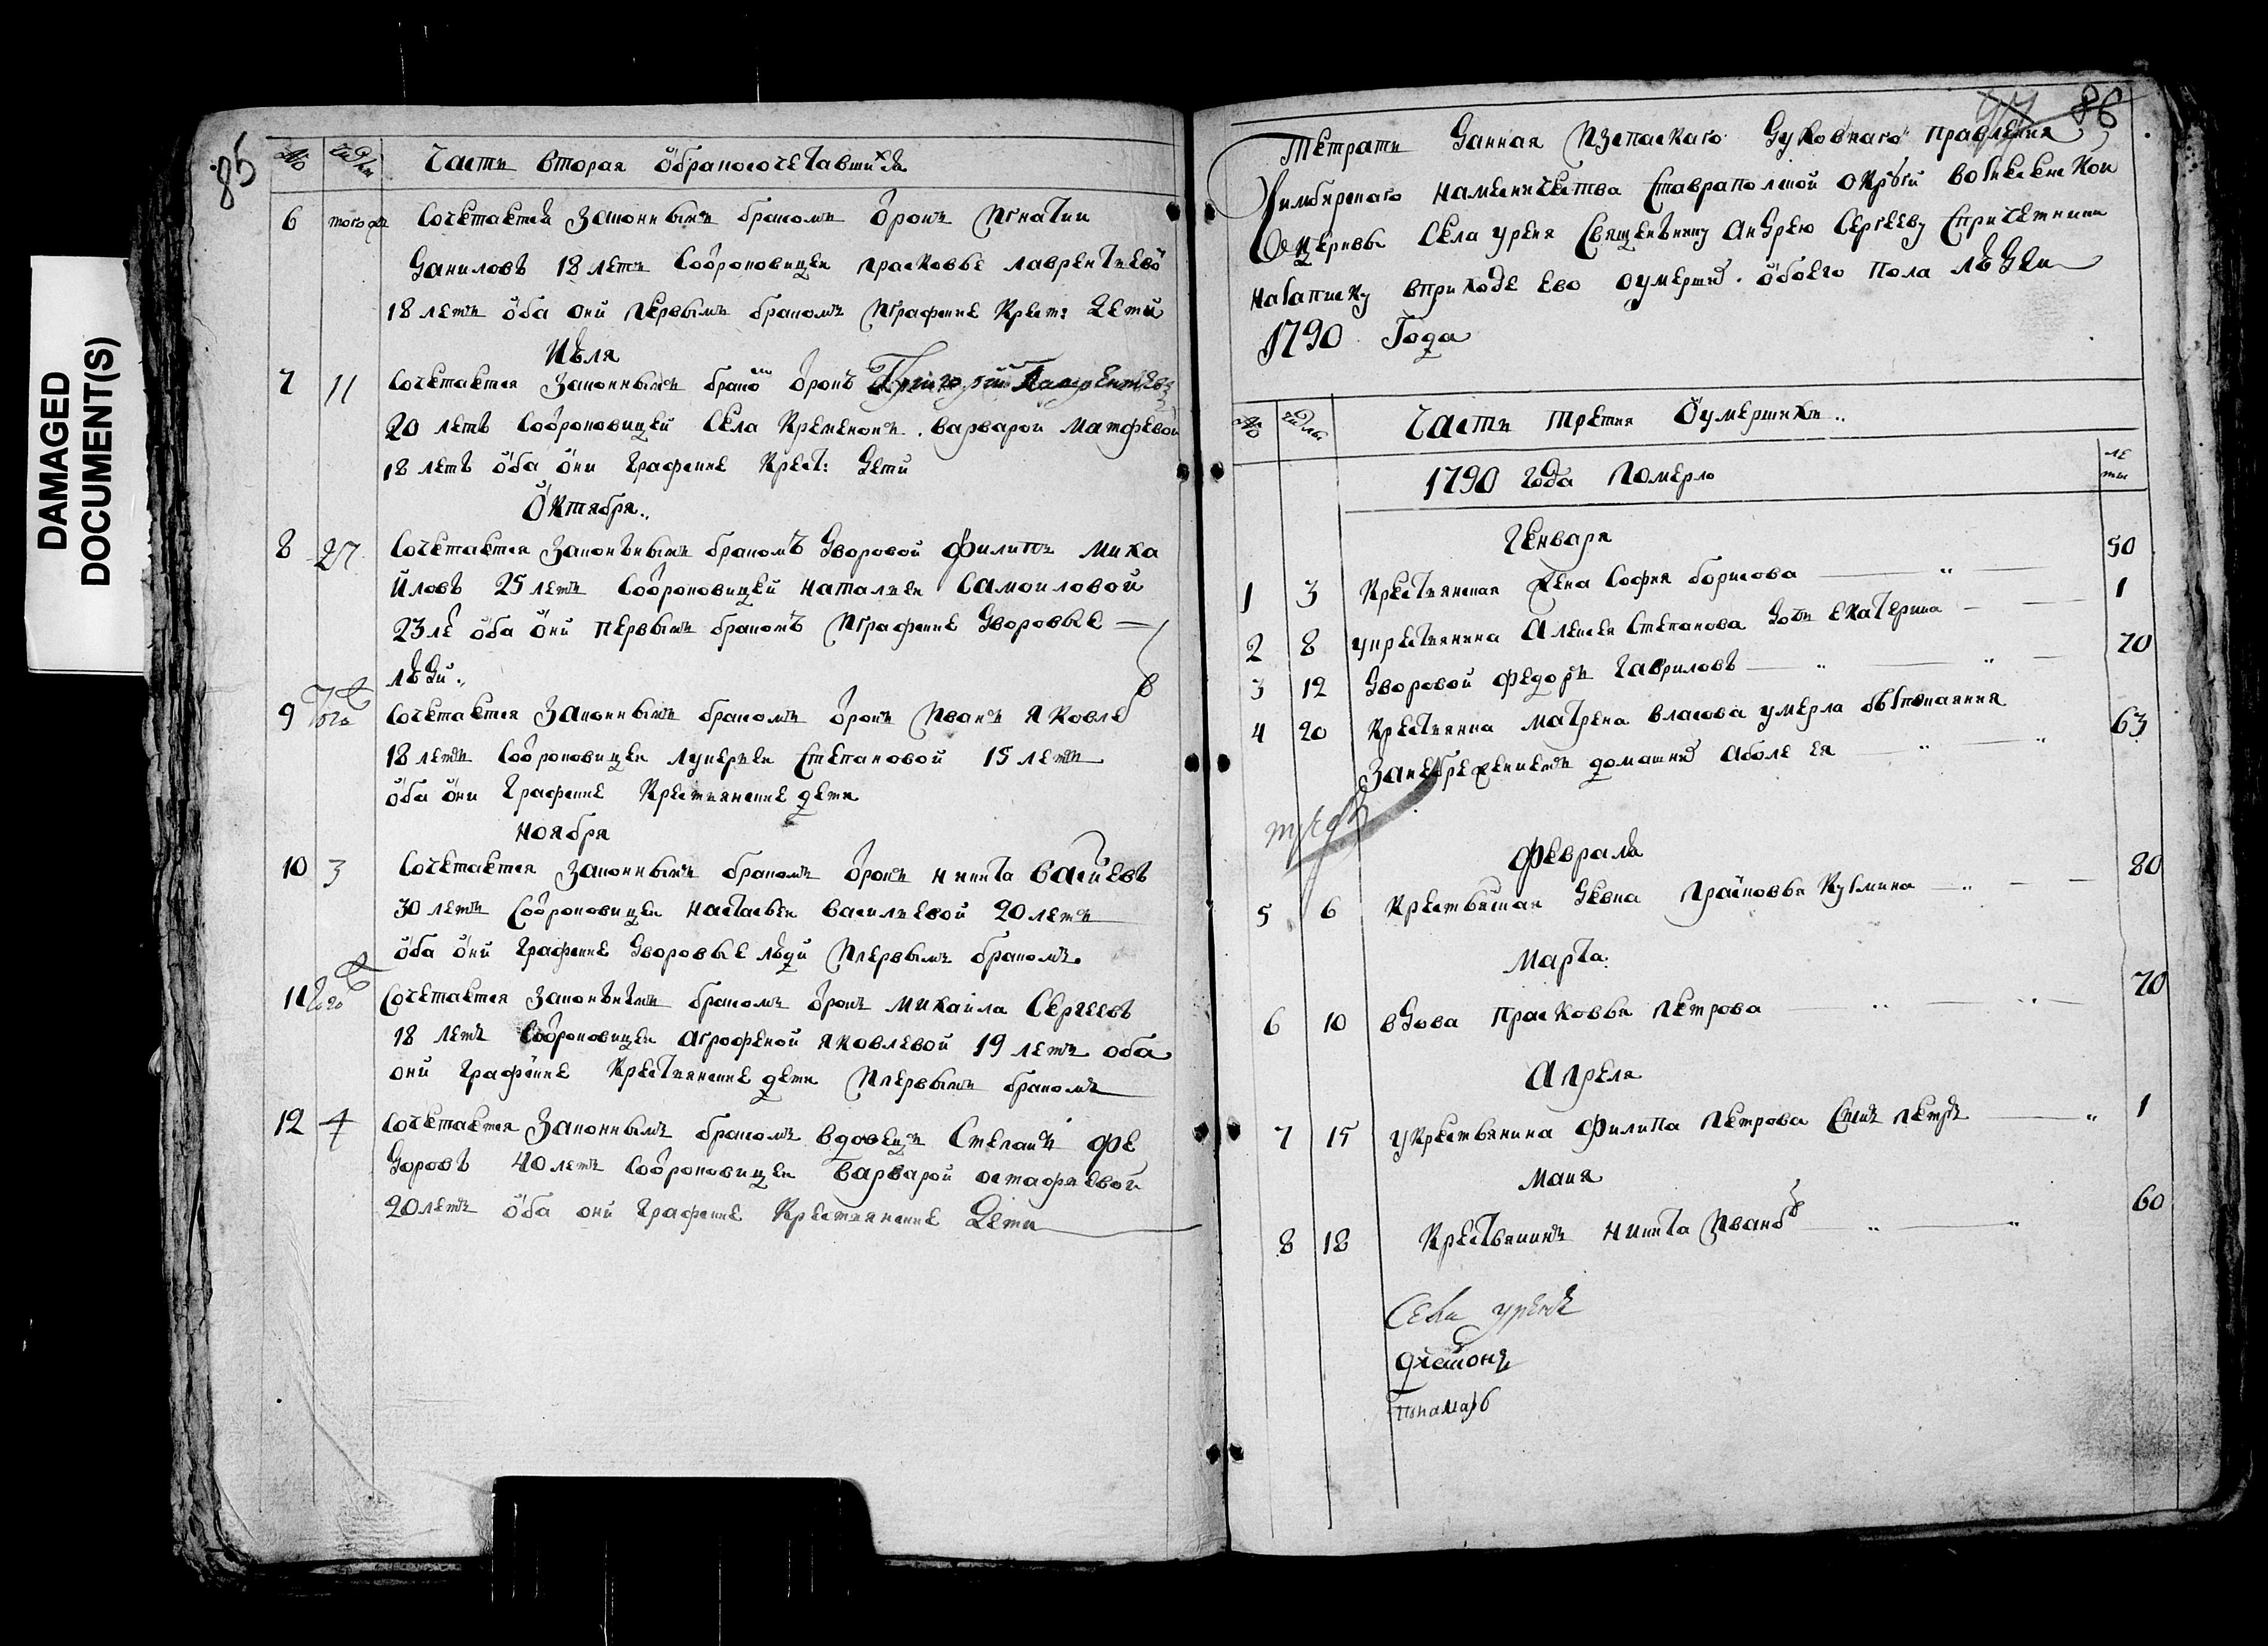 DAMAGED
DOCUMENT(S)
85
№ числы Часть вторая о бракосочетавшихся
6 того ж Сочетался законнымъ бракомъ отрокъ Игнатии
Даниловъ 18 летъ со отроковицеи Прасковье Лаврентиево
18 летъ оба они первымъ бракомъ играфские крест: дети
Июля
7 11 Сочетался законнымъ брако отрокъ Григорий Лаврентиевъ
20 летъ со отроковицей села Кременокъ Варварои Матфевои
18 летъ оба они графские крест: дети
Октября
8 27 Сочетался законънымъ бракомъ дворовой Филипъ Миха
йловъ 25 летъ со отроковицей Наталиеи Самоиловой
23 ле оба они первымъ бракомъ играфские дворовые
люди
9 того ж Сочетался законнымъ бракомъ отрокъ Иванъ Яковлев
18 летъ со отроковицеи Лукериеи Степановой 15 летъ
оба они графские крестиянские дети
Ноября
10 3 Сочетался законнымъ бракомъ отрокъ Никита
30 летъ со отроковицеи Настасьеи Василиевой 20 летъ
оба они графские дворовые люди ипервымъ бракомъ
11 того ж Сочетался законънымъ бракомъ отрокъ Михаила Сергеевъ
18 летъ со отроковицеи Агрофеной Яковлевой 19 летъ оба
они графские крестиянские дети ипервымъ бракомъ
12 4 Сочетался законнымъ бракомъ вдовецъ Степанъ Фе
доровъ 40 летъ со отроковицеи Варварой Остафиевой
20 летъ оба они графские крестиянские дети
86
Тетрать данная изспаскаго духовнаго правления
Симбирскаго наместничества Ставрапольской округи Вознесенской
церквы села Уреня священънику Андрею Сергееву спричетники
назаписку вприходе ево оумершихъ обоего пола людеи
1790 Года
№ числы Часть третия о умершихъ
1790 года померло ле
ты
Генваря
1 3 Крестиянская жена София Борисова 50
2 8 у крестиянина Алексея Степанова дочь Екатерина 1
3 12 Дворовой Федоръ Гавриловъ 70
4 20 Крестиянка Матрена Власова умерла безпокаяния
занебрежениемъ домашних аболе ея 63
Февраля
5 6 Крестьянская девка Прасковья Кузмина 80
Марта
6 10 вдова Прасковья Петрова 70
Апреля
7 15 у крестьянина Филипа Петрова сынъ Петръ 1
Маия
8 18 Крестьянинъ Никита Иванов 60
Села Уреня
дьяконъ
понамарь